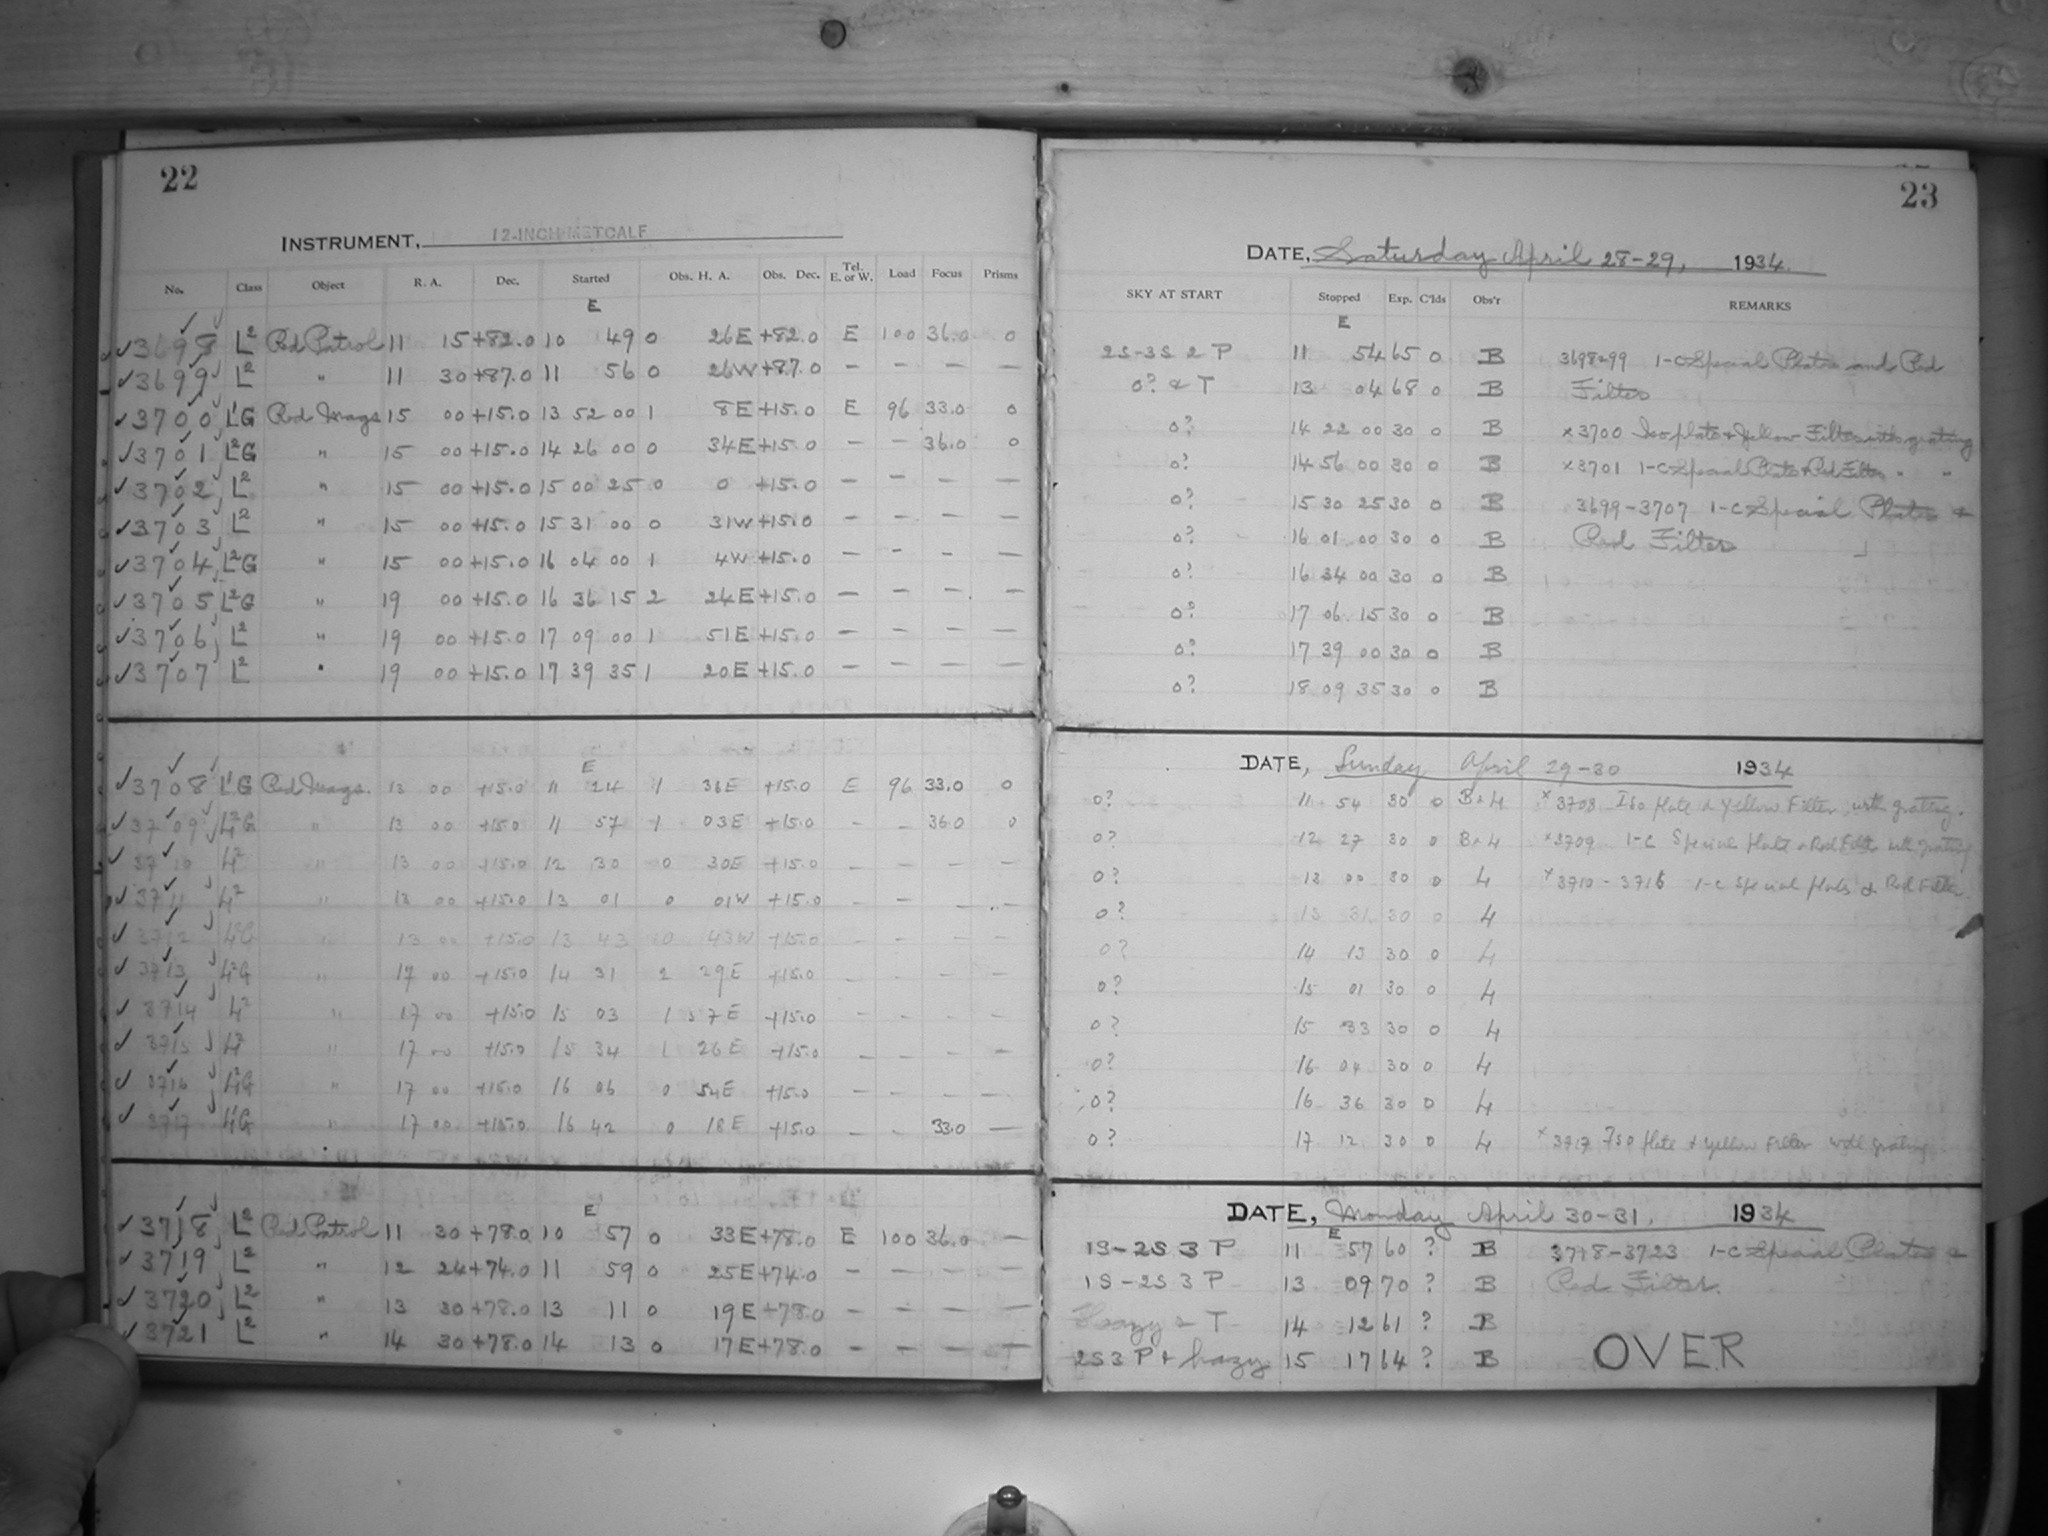 22
INSTRUMENT, 12-INCH METCALF
No. Class Object R. A. Dec. Started Obs. H. A. Obs. Dec. Tel. E. or W. Load Focus Prisms
E
3698 L² Red Patrol 11 15 +82.0 10 49 0 26E +82.0 E 100 36.0 0
3699 L² " 11 30 +87.0 11 56 0 26W +87.0 — — — —
3700 L'G Red Mags 15 00 +15.0 13 52 00 1 8E +15.0 E 96 33.0 0
3701 L²G " 15 00 +15.0 14 26 00 0 34E +15.0 — — 36.0 0
3702 L² " 15 00 +15.0 15 00 25 0 0 +15.0 — — — —
3703 L² " 15 00 +15.0 15 31 00 0 31W +15.0 — — — —
3704 L²G " 15 00 +15.0 16 04 00 1 4W +15.0 — — — —
3705 L²G " 19 00 +15.0 16 36 15 2 24E +15.0 — — — —
3706 L² " 19 00 +15.0 17 09 00 1 51E +15.0 — — — —
3707 L² " 19 00 +15.0 17 39 35 1 20E +15.0 — — — —
E
3708 L'G Red Mags. 13 00 +15.0 11 24 1 36E +15.0 E 96 33.0 0
3709 L²G " 13 00 +15.0 11 57 1 03E +15.0 — — 36.0 0
3710 L² " 13 00 +15.0 12 30 0 30E +15.0 — — — —
3711 L² " 13 00 +15.0 13 01 0 01W +15.0 — — — —
3712 L²G " 13 00 +15.0 13 43 0 43W +15.0 — — — —
3713 L²G " 17 00 +15.0 14 31 2 29E +15.0 — — — —
3714 L² " 17 00 +15.0 15 03 1 57E +15.0 — — — —
3715 L² " 17 00 +15.0 15 34 1 26E +15.0 — — — —
3716 L²G " 17 00 +15.0 16 06 0 54E +15.0 — — — —
3717 L'G " 17 00 +15.0 16 42 0 18E +15.0 — — 33.0 —
E
3718 L² Red Patrol 11 30 +78.0 10 57 0 33E +78.0 E 100 36.0 —
3719 L² " 12 24 +74.0 11 59 0 25E +74.0 — — — —
3720 L² " 13 30 +78.0 13 11 0 19E +78.0 — — — —
3721 L² " 14 30 +78.0 14 13 0 17E +78.0 — — — —
23
DATE, Saturday April 28-29, 1934.
SKY AT START Stopped Exp. C'lds Obs'r REMARKS
E
2S-3S 2 P 11 54 65 0 B 3698-99 1-C Special Plates and Red
0? & T 13 04 68 0 B Filter
0? 14 22 00 30 0 B x3700 Iso plate & Yellow Filter with grating
0? 14 56 00 30 0 B x3701 1-C Special Plate & Red Filter " "
0? 15 30 25 30 0 B 3699-3707 1-C Special Plates &
0? 16 01 00 30 0 B Red Filter
0? 16 34 00 30 0 B
0? 17 06 15 30 0 B
0? 17 39 00 30 0 B
0? 18 09 35 30 0 B
DATE, Sunday April 29-30 1934
0? 11 54 30 0 B+4 x3708 Iso plate & Yellow Filter with grating.
0? 12 27 30 0 B+4 x3709 1-C Special plate & Red Filter with grating
0? 13 00 30 0 4 x3710-3716 1-C Special plates & Red Filter.
0? 13 31 30 0 4
0? 14 13 30 0 4
0? 15 01 30 0 4
0? 15 33 30 0 4
0? 16 04 30 0 4
0? 16 36 30 0 4
0? 17 12 30 0 4 x3717 Iso plate & Yellow Filter with grating
DATE, Monday April 30-31, 1934
E
1S-2S 3 P 11 57 60 ? B 3718-3723 1-C Special Plates &
1S-2S 3 P 13 09 70 ? B Red Filter.
Hazy & T 14 12 61 ? B
2S 3 P & hazy 15 17 64 ? B OVER